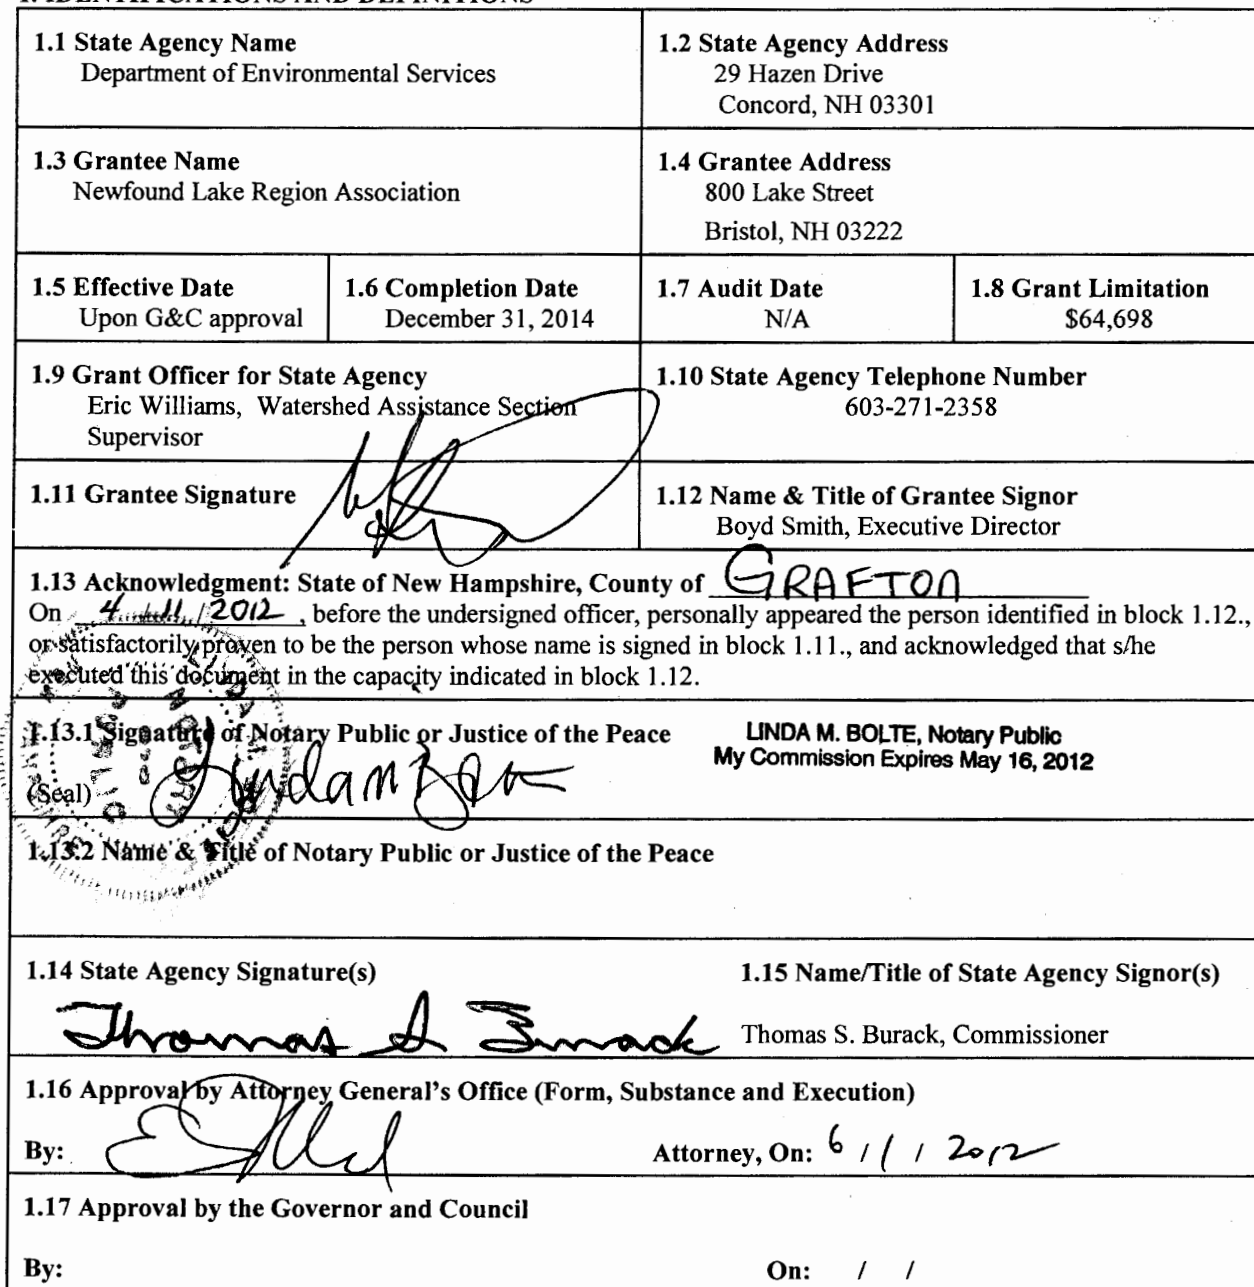 1.1 State Agency Name
Department of Environmental Services
1.2 State Agency Address
29 Hazen Drive
Concord, NH 03301
1.3 Grantee Name
Newfound Lake Region Association
1.4 Grantee Address
800 Lake Street
Bristol, NH 03222
1.5 Effective Date
Upon G&C approval
1.6 Completion Date
December 31, 2014
1.7 Audit Date
N/A
1.8 Grant Limitation
$64,698
1.9 Grant Officer for State Agency
Eric Williams, Watershed Assistance Section
Supervisor
1.10 State Agency Telephone Number
603-271-2358
1.11 Grantee Signature
1.12 Name & Title of Grantee Signor
Boyd Smith, Executive Director
1.13 Acknowledgment: State of New Hampshire, County of GRAFTON
On 4/11/2012, before the undersigned officer, personally appeared the person identified in block 1.12.,
or satisfactorily proven to be the person whose name is signed in block 1.11., and acknowledged that s/he
executed this document in the capacity indicated in block 1.12.
1.13.1 Signature of Notary Public or Justice of the Peace
LINDA M. BOLTE, Notary Public
My Commission Expires May 16, 2012
(Seal) Linda M Bolte
1.13.2 Name & Title of Notary Public or Justice of the Peace
1.14 State Agency Signature(s)
1.15 Name/Title of State Agency Signor(s)
Thomas S Burack
Thomas S. Burack, Commissioner
1.16 Approval by Attorney General's Office (Form, Substance and Execution)
By: Attorney, On: 6 / 1 / 2012
1.17 Approval by the Governor and Council
By: On: / /